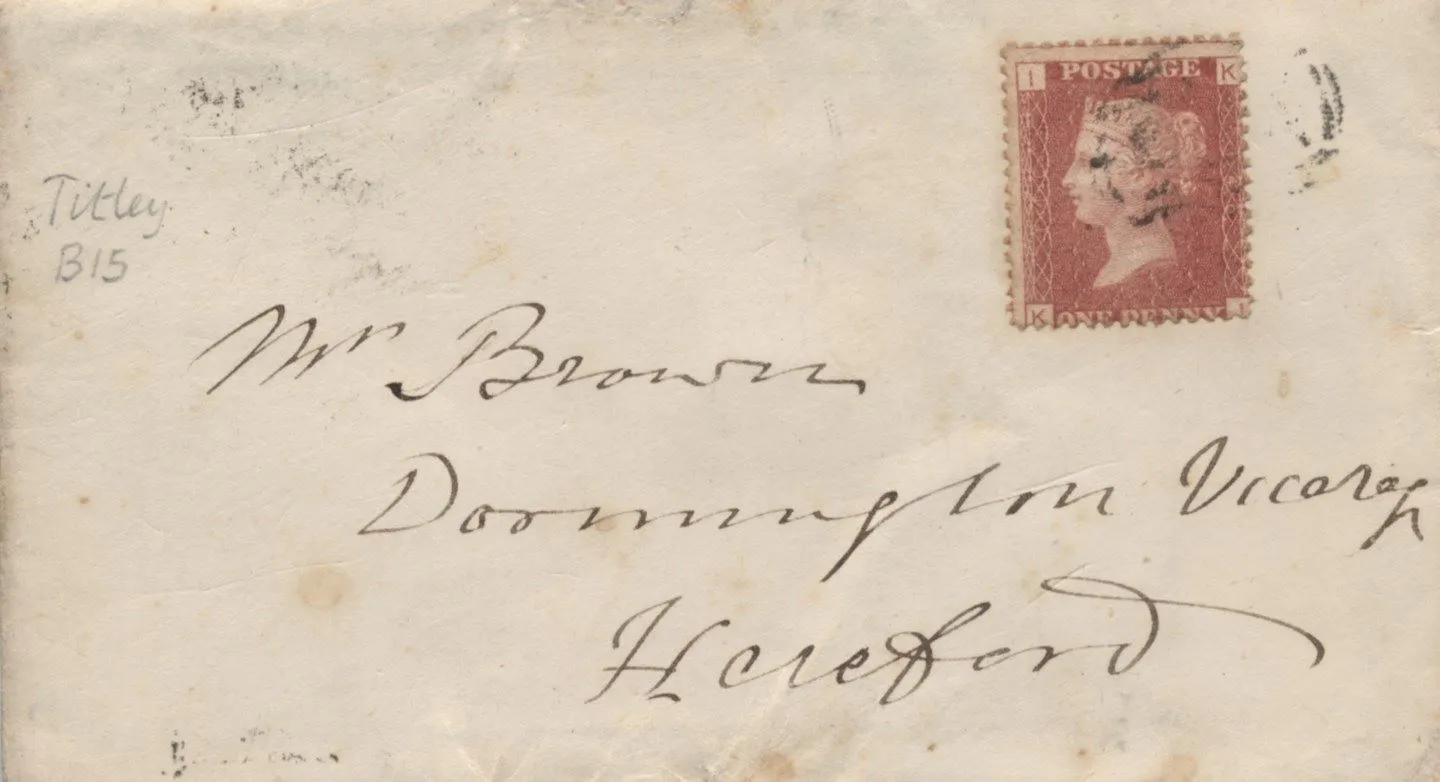 I POSTAGE K
K ONE PENNY I
Titley
B15
Mr Brown
Dormington Vicarage
Hereford